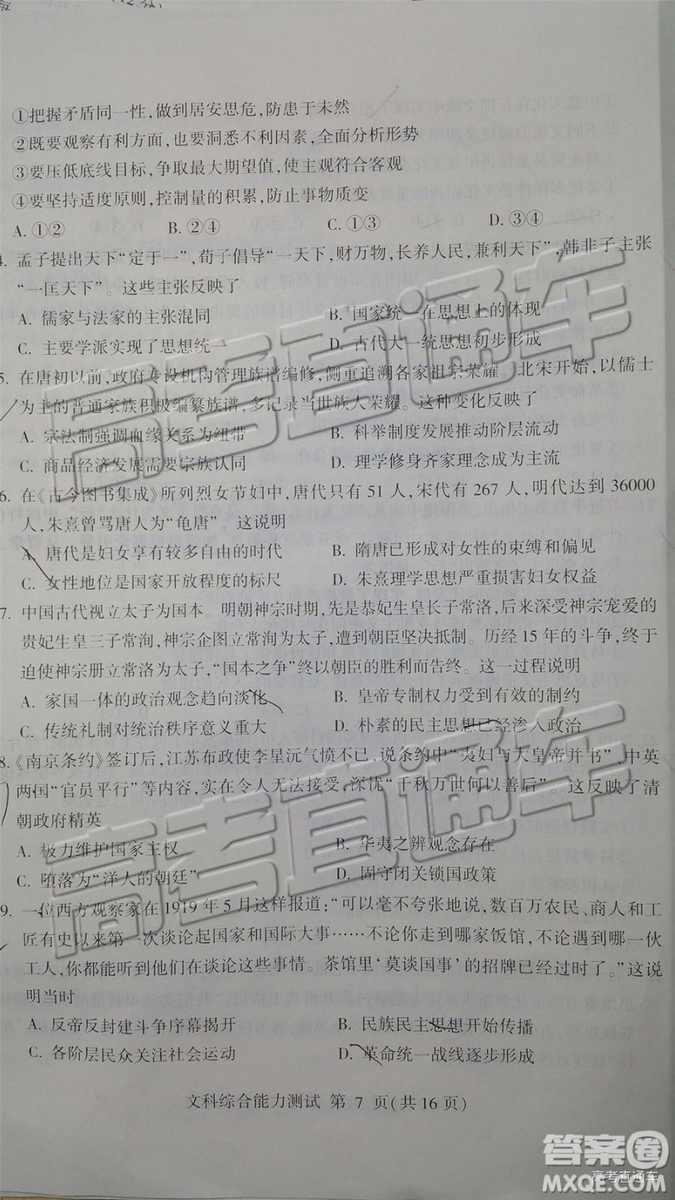 ①把握矛盾同一性，做到居安思危，防患于未然
②既要观察有利方面，也要洞悉不利因素，全面分析形势
③要压低底线目标，争取最大期望值，使主观符合客观
④要坚持适度原则，控制量的积累，防止事物质变
A. ①② B. ②④ C. ①③ D. ③④
4. 孟子提出天下“定于一”，荀子倡导“一天下，财万物，长养人民，兼利天下”，韩非子主张
“一匡天下”。这些主张反映了
A. 儒家与法家的主张混同 B. 国家统一在思想上的体现
C. 主要学派实现了思想统一 D. 古代大一统思想初步形成
5. 在唐初以前，政府专设机构管理族谱编修，侧重追溯各家祖宗荣耀。北宋开始，以儒士
为主的普通家族积极编纂族谱，多记录当世族人荣耀。这种变化反映了
A. 宗法制强调血缘关系为纽带 B. 科举制度发展推动阶层流动
C. 商品经济发展需要宗族认同 D. 理学修身齐家理念成为主流
6. 在《古今图书集成》所列烈女节妇中，唐代只有 51 人，宋代有 267 人，明代达到 36000
人，朱熹曾骂唐人为“龟唐”。这说明
A. 唐代是妇女享有较多自由的时代 B. 隋唐已形成对女性的束缚和偏见
C. 女性地位是国家开放程度的标尺 D. 朱熹理学思想严重损害妇女权益
7. 中国古代视立太子为国本。明朝神宗时期，先是恭妃生皇长子常洛，后来深受神宗宠爱的
贵妃生皇三子常洵，神宗企图立常洵为太子，遭到朝臣坚决抵制。历经 15 年的斗争，终于
迫使神宗册立常洛为太子，“国本之争”终以朝臣的胜利而告终。这一过程说明
A. 家国一体的政治观念趋向淡化 B. 皇帝专制权力受到有效的制约
C. 传统礼制对统治秩序意义重大 D. 朴素的民主思想已经渗入政治
8. 《南京条约》签订后，江苏布政使李星沅气愤不已，说条约中“夷妇与大皇帝并书”，中英
两国“官员平行”等内容，实在令人无法接受，深忧“千秋万世何以善后”。这反映了清
朝政府精英
A. 极力维护国家主权 B. 华夷之辨观念存在
C. 堕落为“洋人的朝廷” D. 固守闭关锁国政策
9. 一位西方观察家在 1919 年 5 月这样报道：“可以毫不夸张地说，数百万农民、商人和工
匠有史以来第一次谈论起国家和国际大事……不论你走到哪家饭馆，不论你遇到哪一伙
工人，你都能听到他们在谈论这些事情。茶馆里‘莫谈国事’的招牌已经过时了。”这说
明当时
A. 反帝反封建斗争序幕揭开 B. 民族民主思想开始传播
C. 各阶层民众关注社会运动 D. 革命统一战线逐步形成
文科综合能力测试 第 7 页(共16页)
高考直通车
高考直通车
答案圈
高考直通车
MXQE.COM